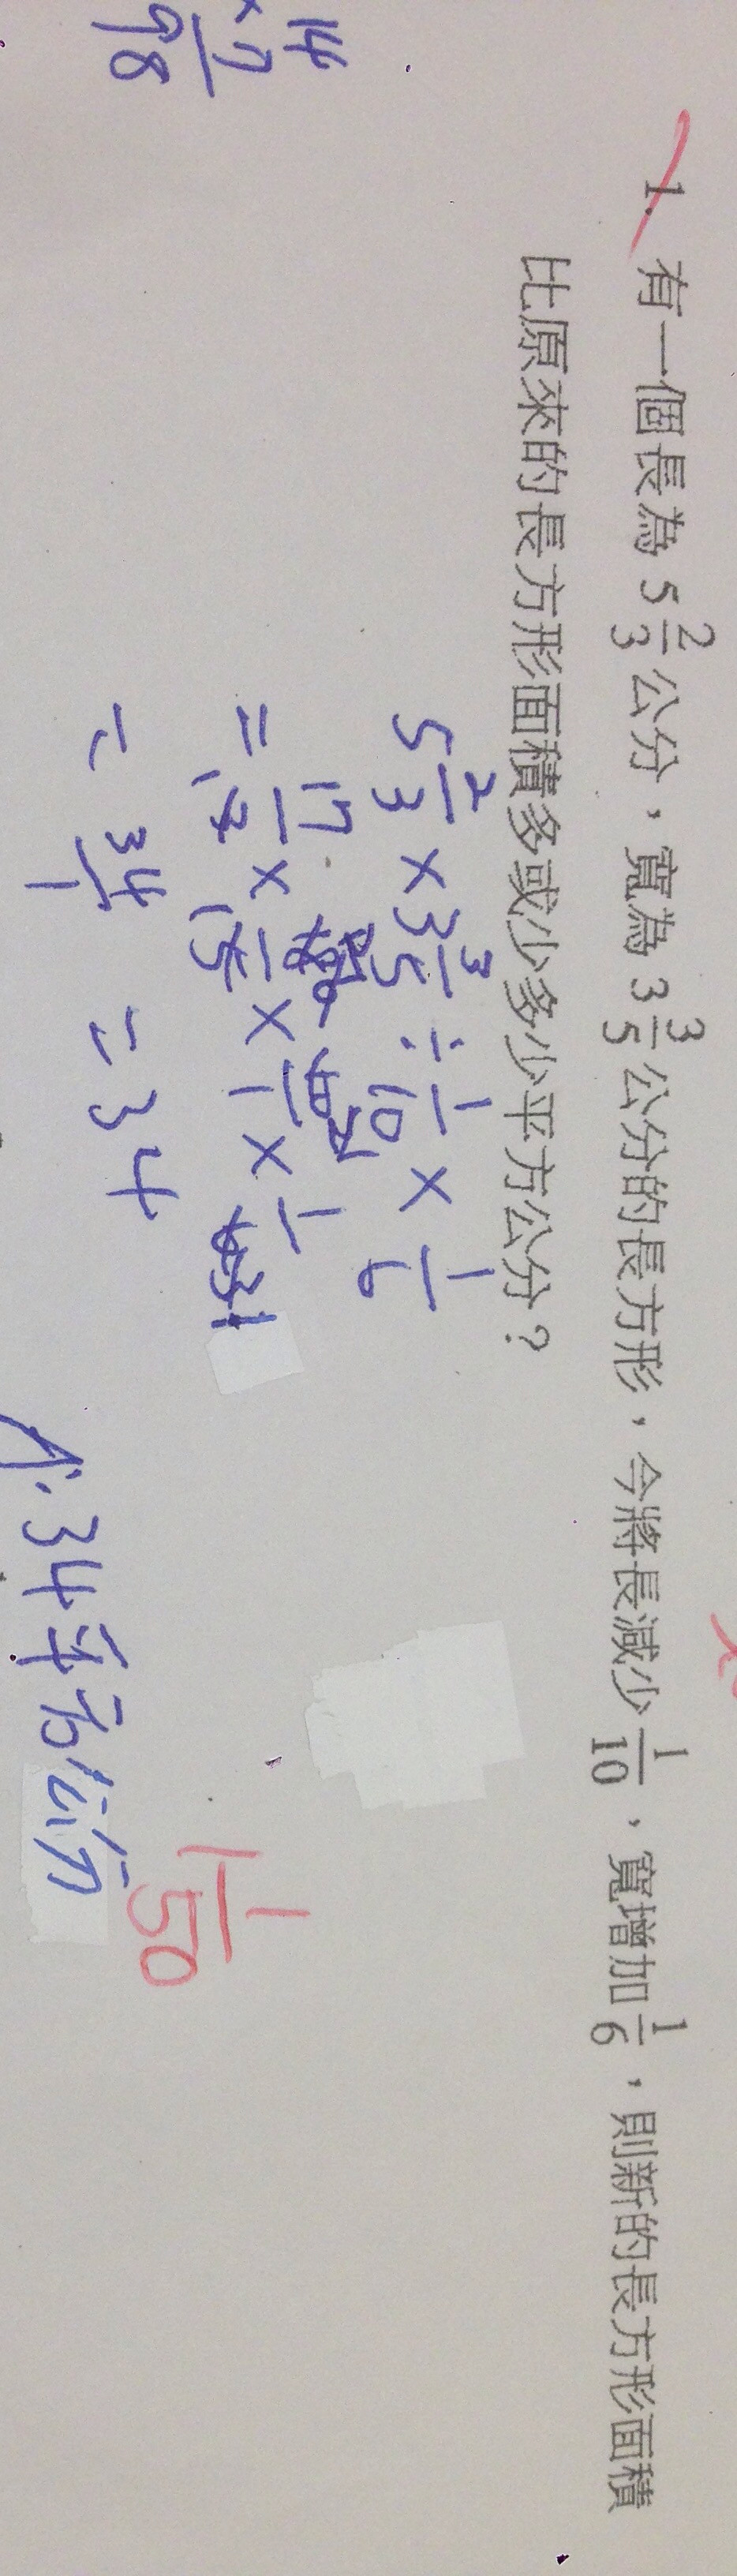 1. 有一個長為 5 2/3 公分，寬為 3 3/5 公分的長方形，今將長減少 1/10，寬增加 1/6，則新的長方形面積
比原來的長方形面積多或少多少平方公分？
5 2/3 × 3 3/5 ÷ 1/10 × 1/6
= 17/
= 34/1 = 34
A: 34平方公分
1 1/50
14
×7
98